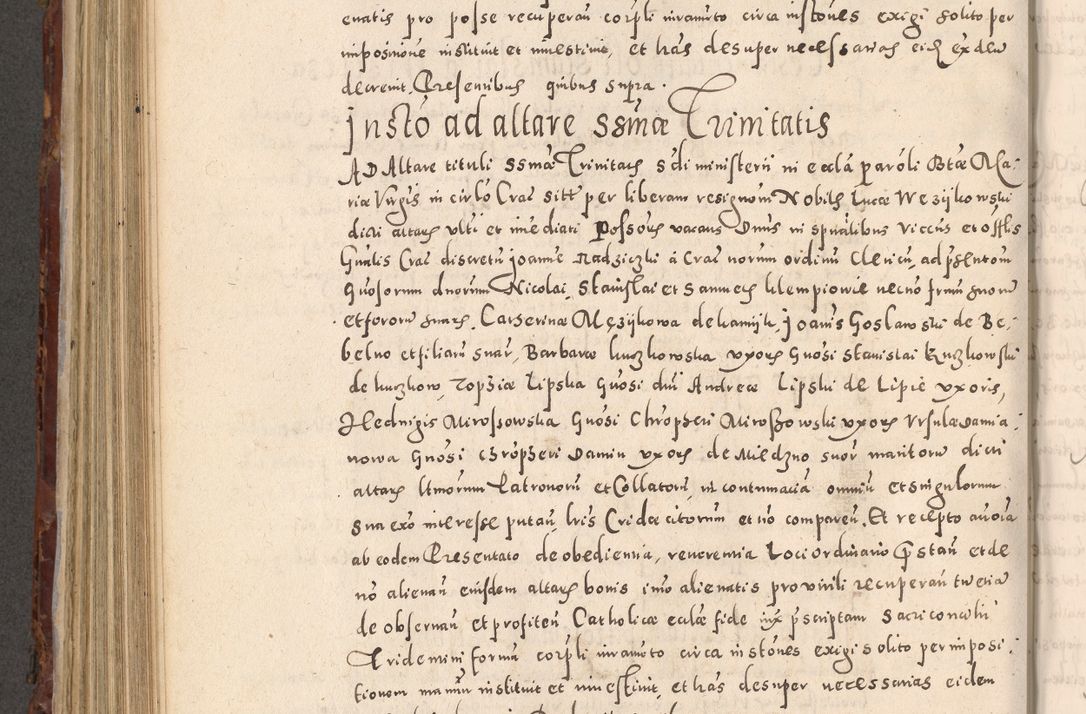 enatis pro posse recuperañ corp̃li iuramto circa instõnes exigi solito per
impositione instituit et inuestiuit, et has desuper necessarias eidẽ ex deu
decreuit. Presentibus quibus supra.
Institõ ad altare SSmæ Trinitatis
AD Altare tituli SSmæ Trinitatis s di ministerii in ecclã parõli Btæ Ma:
riæ Virgĩs in circlõ Crac̃ sitt per liberam resignõm Nobilis Lucæ Wezijkowski
dicti altaris vlti et imediati possoris vacans Dnus in sp̃ualibus Viccus et offlis
Gñalis Crac̃ discretũ Joannẽ Radziczki á Crac̃ norum ordinũ Clericũ, ad p̃sentõm
Gñosorum dnorum Nicolai, Stanislai et Samuelis Klempiowie necnõ frum suorũ
et sororũ suarũ, Catherinæ Męzijkowa de kamijk, Joanis Goslawski de Be:
belno et filiarũ suarũ, Barbaræ kuczkowska vxoris Gnosi Stanislai Kuczkowski
de kuczkow, Zophiæ Lipska Gnosi dni Andreæ Lipski de Lipie vxoris,
Hedwigis Mirossowska Gnosi Chrõpheri Miroszowski vxoris Vrsulæ Damia:
nowa Gnosi Chrõpheri Damin vxoris de Miedzno suorũ maritorũ dicti
altaris ltmorum Patronorũ et Collatorũ, in contumaciã omniũ et singulorum
sua exõ interesse putañ, lris Cridæ citorum et nõ compareñ. Et recepto a uoia
ab eodem Presentato de obedientia, reuerentia Loci ordinario p̃stañ et de
nõ alienañ eiusdem altaris bonis imo alienatis pro virili recuperañ
de obseruañ et profiteñ Catholicæ ecclæ fide iux p̃scriptam Sacri concilii
Tridemini formã corp̃li iuramto circa instõnes exigi solito per imposi:
tionem manuũ instituit et inuestiuit, et has desuper necessarias eidem